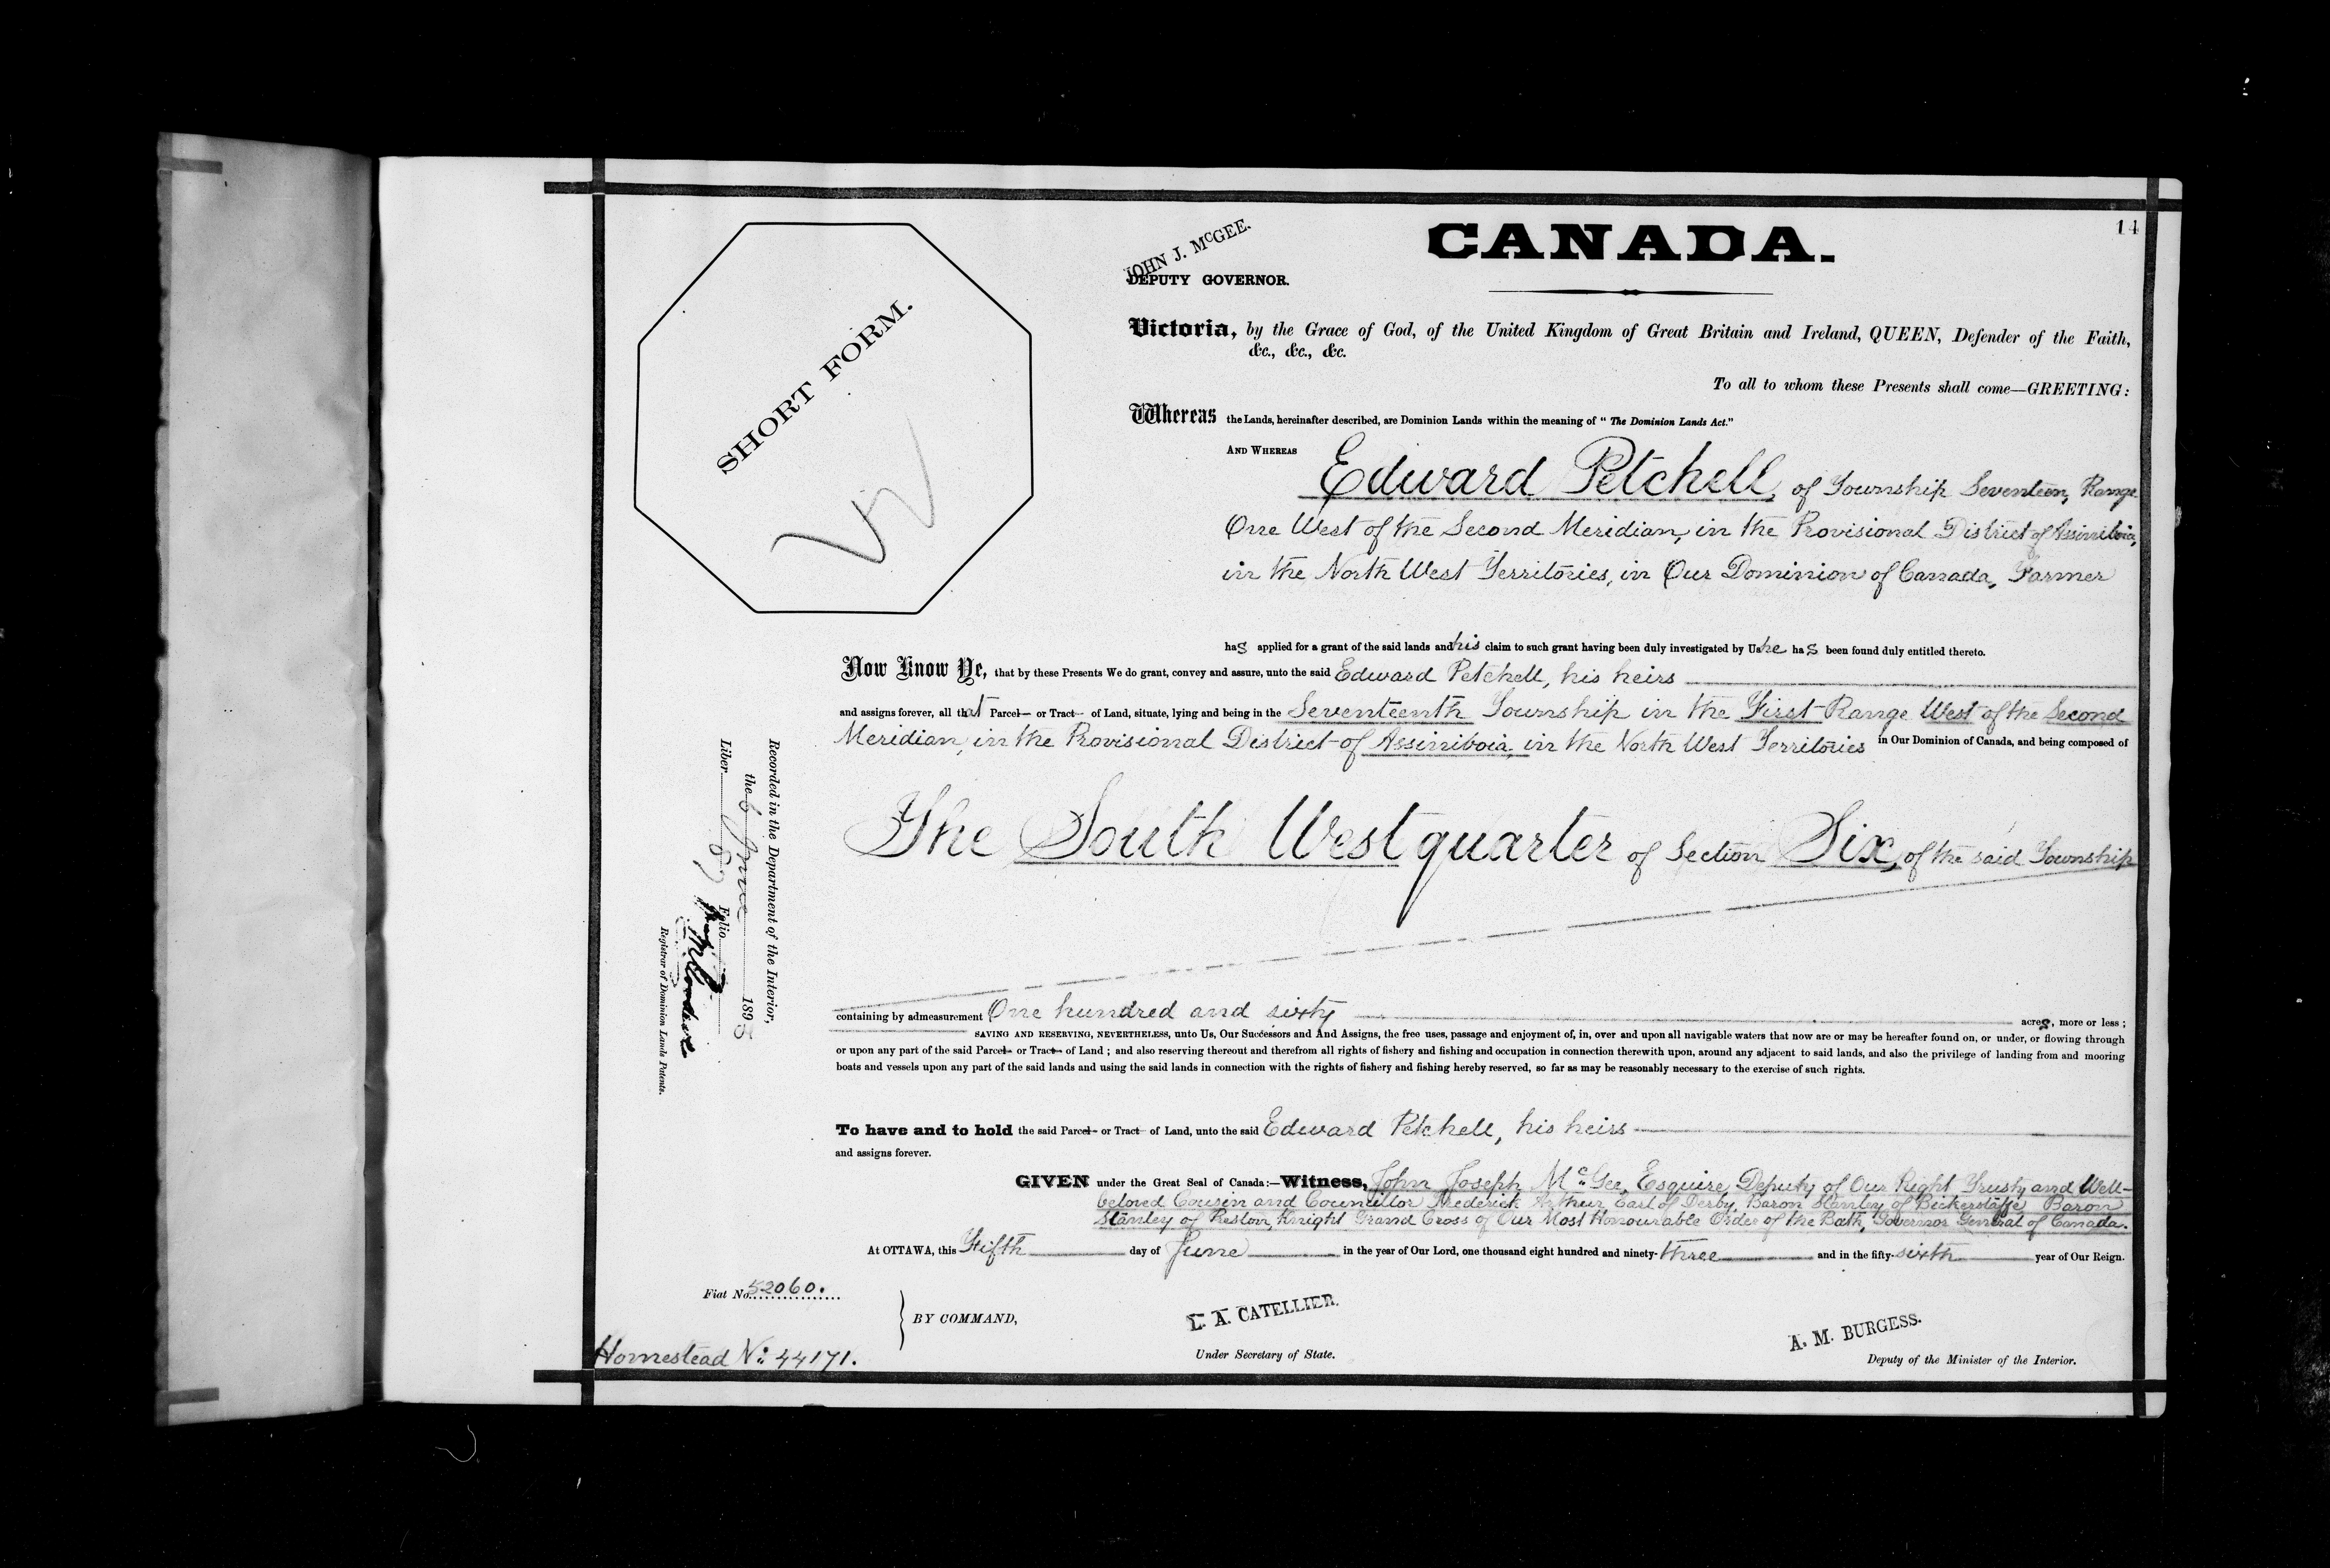 14
CANADA.
JOHN J. McGEE.
DEPUTY GOVERNOR.
SHORT FORM.
Victoria, by the Grace of God, of the United Kingdom of Great Britain and Ireland, QUEEN, Defender of the Faith,
&c., &c., &c.
To all to whom these Presents shall come—GREETING:
Whereas the Lands, hereinafter described, are Dominion Lands within the meaning of "The Dominion Lands Act."
AND WHEREAS Edward Petchell, of Township Seventeen, Range
One West of the Second Meridian, in the Provisional District of Assiniboia,
in the North West Territories, in Our Dominion of Canada, Farmer
has applied for a grant of the said lands and his claim to such grant having been duly investigated by Us he has been found duly entitled thereto.
Now Know Ye, that by these Presents We do grant, convey and assure, unto the said Edward Petchell, his heirs
and assigns forever, all that Parcel or Tract of Land, situate, lying and being in the Seventeenth Township in the First Range West of the Second
Meridian, in the Provisional District of Assiniboia, in the North West Territories in Our Dominion of Canada, and being composed of
The South West quarter of Section Six, of the said Township
containing by admeasurement One hundred and sixty acres, more or less;
SAVING AND RESERVING, NEVERTHELESS, unto Us, Our Successors and And Assigns, the free uses, passage and enjoyment of, in, over and upon all navigable waters that now are or may be hereafter found on, or under, or flowing through
or upon any part of the said Parcel or Tract of Land; and also reserving thereout and therefrom all rights of fishery and fishing and occupation in connection therewith upon, around any adjacent to said lands, and also the privilege of landing from and mooring
boats and vessels upon any part of the said lands and using the said lands in connection with the rights of fishery and fishing hereby reserved, so far as may be reasonably necessary to the exercise of such rights.
To have and to hold the said Parcel or Tract of Land, unto the said Edward Petchell, his heirs
and assigns forever.
GIVEN under the Great Seal of Canada:—Witness, John Joseph McGee, Esquire, Deputy of Our Right Trusty and Well-
beloved Cousin and Councillor Frederick Arthur, Earl of Derby, Baron Stanley of Bickerstaffe Baron
Stanley of Preston, Knight Grand Cross of Our Most Honourable Order of the Bath, Governor General of Canada.
At OTTAWA, this Fifth day of June in the year of Our Lord, one thousand eight hundred and ninety-three and in the fifty-sixth year of Our Reign.
Fiat No. 52060.
BY COMMAND,
L. A. CATELLIER.
Under Secretary of State.
A. M. BURGESS.
Deputy of the Minister of the Interior.
Homestead No. 44171.
Recorded in the Department of the Interior,
the 6 June 1893
Liber 87 Folio
Registrar of Dominion Lands Patents.